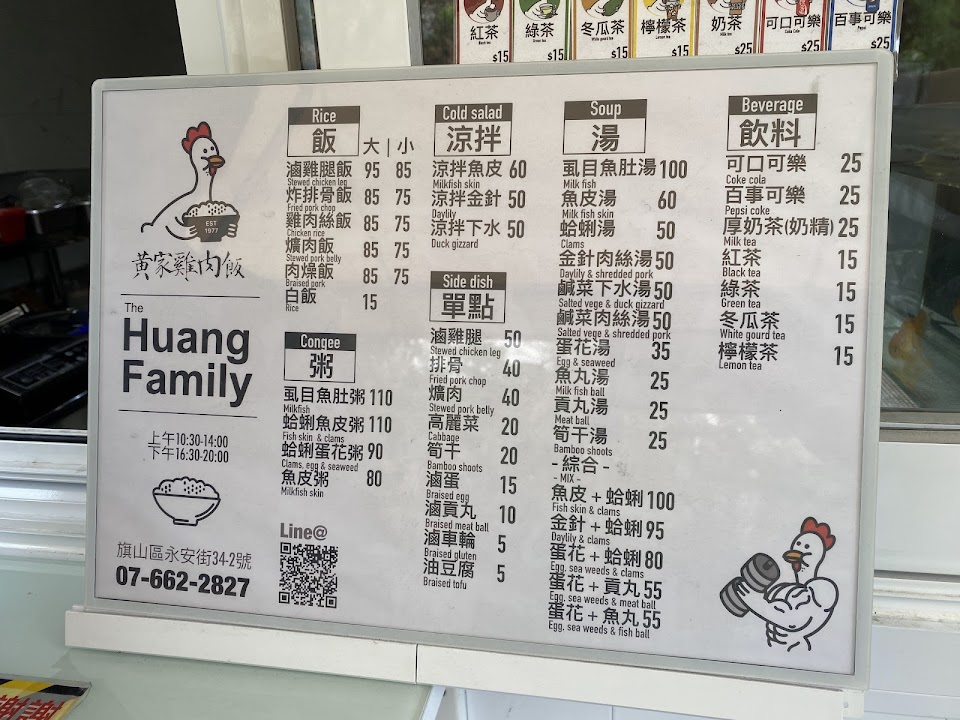 紅茶
Black tea
$15
綠茶
Green tea
$15
冬瓜茶
White gourd tea
$15
檸檬茶
Lemon tea
$15
奶茶
Milk tea
$25
可口可樂
Coke Cola
$25
百事可樂
Pepsi
$25
EST
1977
黃家雞肉飯
The
Huang
Family
上午10:30-14:00
下午16:30-20:00
旗山區永安街34-2號
07-662-2827
Rice
飯 大 | 小
滷雞腿飯 95 85
Stewed chicken leg
炸排骨飯 85 75
Fried pork chop
雞肉絲飯 85 75
Chicken rice
爌肉飯 85 75
Stewed pork belly
肉燥飯 85 75
Braised pork
白飯 15
Rice
Congee
粥
虱目魚肚粥 110
Milkfish
蛤蜊魚皮粥 110
Fish skin & clams
蛤蜊蛋花粥 90
Clams, egg & seaweed
魚皮粥 80
Milkfish skin
Line@
Cold salad
涼拌
涼拌魚皮 60
Milkfish skin
涼拌金針 50
Daylily
涼拌下水 50
Duck gizzard
Side dish
單點
滷雞腿 50
Stewed chicken leg
排骨 40
Fried pork chop
爌肉 40
Stewed pork belly
高麗菜 20
Cabbage
筍干 20
Bamboo shoots
滷蛋 15
Braised egg
滷貢丸 10
Braised meat ball
滷車輪 5
Braised gluten
油豆腐 5
Braised tofu
Soup
湯
虱目魚肚湯 100
Milk fish
魚皮湯 60
Milk fish skin
蛤蜊湯 50
Clams
金針肉絲湯 50
Daylily & shredded pork
鹹菜下水湯 50
Salted vege & duck gizzard
鹹菜肉絲湯 50
Salted vege & shredded pork
蛋花湯 35
Egg & seaweed
魚丸湯 25
Milk fish ball
貢丸湯 25
Meat ball
筍干湯 25
Bamboo shoots
- 綜合 -
- MIX -
魚皮 + 蛤蜊 100
Fish skin & clams
金針 + 蛤蜊 95
Daylily & clams
蛋花 + 蛤蜊 80
Egg, sea weeds & clams
蛋花 + 貢丸 55
Egg, sea weeds & meat ball
蛋花 + 魚丸 55
Egg, sea weeds & fish ball
Beverage
飲料
可口可樂 25
Coke cola
百事可樂 25
Pepsi coke
厚奶茶(奶精) 25
Milk tea
紅茶 15
Black tea
綠茶 15
Green tea
冬瓜茶 15
White gourd tea
檸檬茶 15
Lemon tea